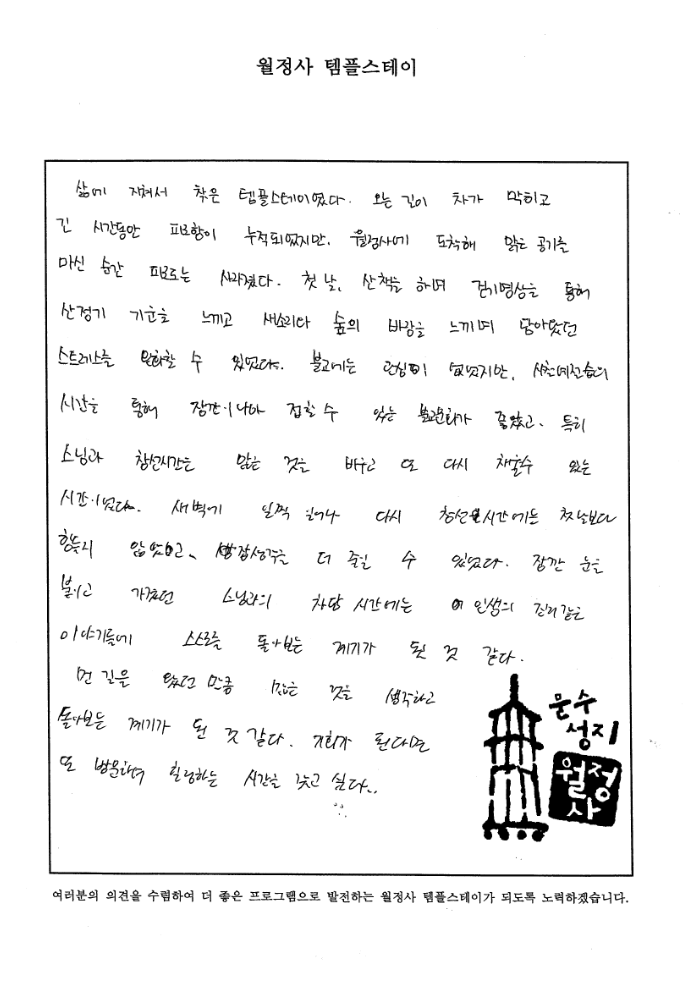 월정사 템플스테이
삶에 지쳐서 찾은 템플스테이였다. 오는 길이 차가 막히고
긴 시간동안 피로함이 누적되었지만, 월정사에 도착해 맑은 공기를
마신 순간 피로는 사라졌다. 첫 날, 산책을 하며 걷기명상을 통해
산정기 기운을 느끼고 새소리와 숲의 바람을 느끼며 쌓아왔던
스트레스를 완화할 수 있었다. 불교에는 관심이 없었지만, 사찰예절습의
시간을 통해 잠깐이나마 접할 수 있는 불교문화가 좋았고, 특히
스님과 참선시간은 많은 것을 배우고 또 다시 채울수 있는
시간이었다. 새벽에 일찍 일어나 다시 참선시간에는 첫날보다
힘들지 않았고, 더 줄일 수 있었다. 잠깐 눈을
붙이고 가졌던 스님과의 차담 시간에는 인생의 진리같은
이야기들에 스스로를 돌아보는 계기가 된 것 같다.
먼 길을 왔던 만큼 많은 것을 생각하고
돌아보는 계기가 된 것 같다. 기회가 된다면
또 방문하여 힐링하는 시간을 갖고 싶다..
문수
성지
월정
사
여러분의 의견을 수렴하여 더 좋은 프로그램으로 발전하는 월정사 템플스테이가 되도록 노력하겠습니다.